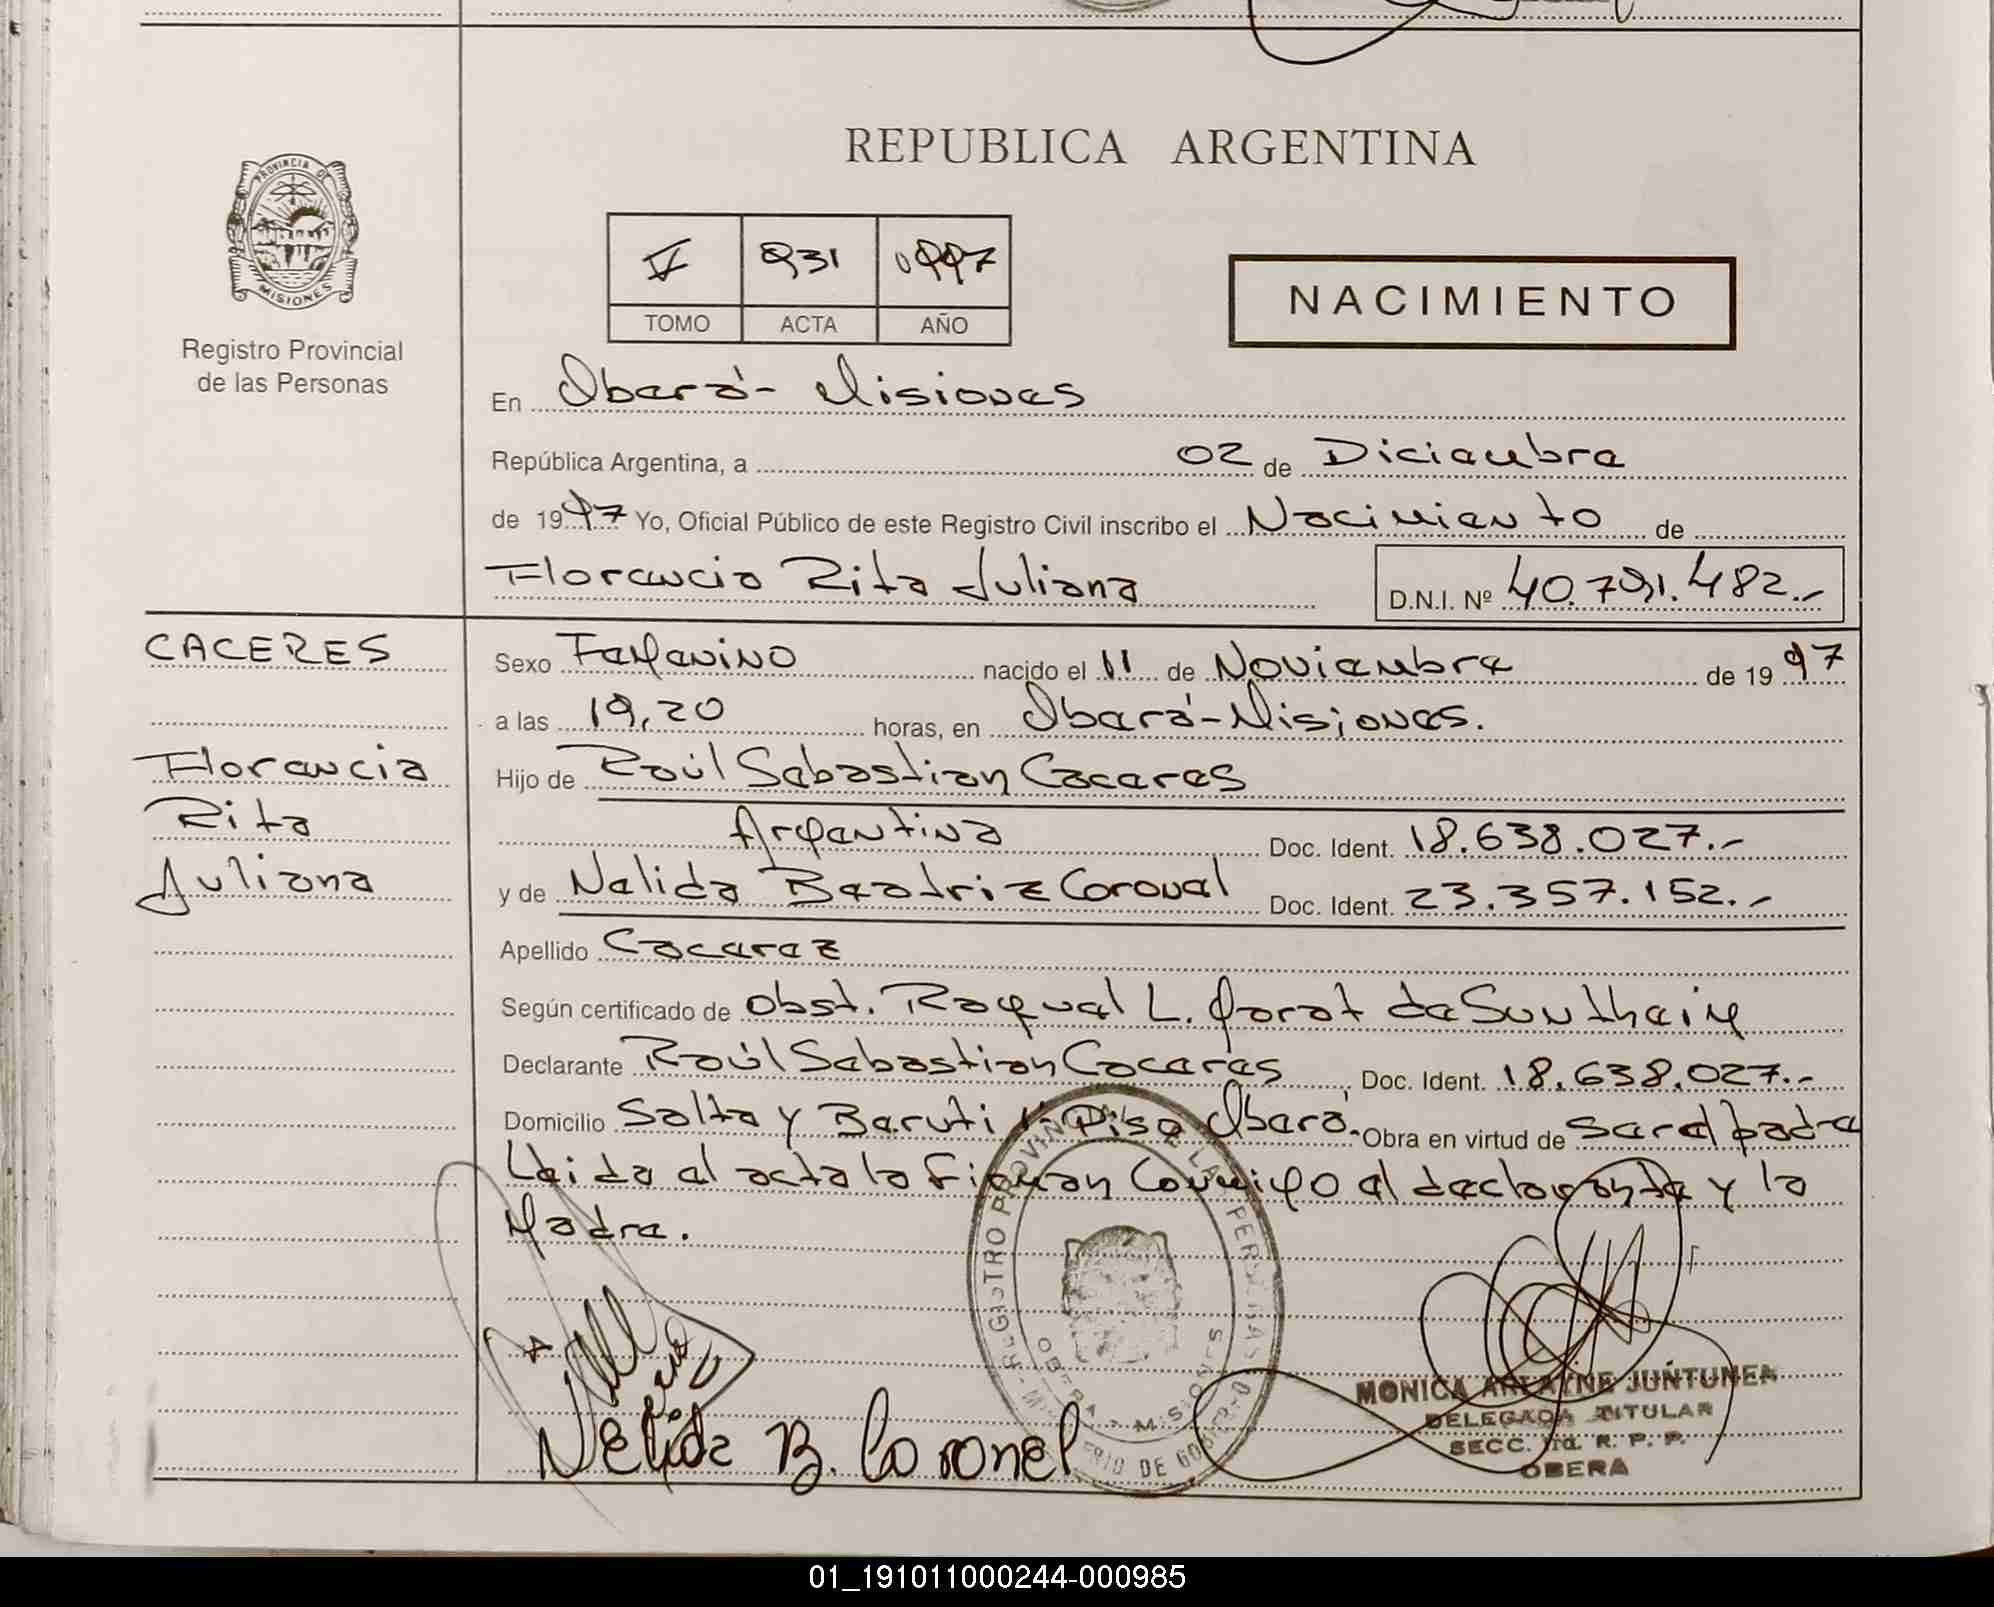 REPUBLICA ARGENTINA
PROVINCIA DE
MISIONES
Registro Provincial
de las Personas
V 931 1997
TOMO ACTA AÑO
NACIMIENTO
En Oberá - Misiones
República Argentina, a 02 de Diciembre
de 1997 Yo, Oficial Público de este Registro Civil inscribo el Nacimiento de
Florencia Rita Juliana D.N.I. Nº 40.791.482.-
CACERES
Florencia
Rita
Juliana
Sexo Femenino nacido el 11 de Noviembre de 1997
a las 19,20 horas, en Oberá - Misiones.
Hijo de Raúl Sebastian Caceres
Argentina Doc. Ident. 18.638.027.-
y de Nelida Beatriz Coronel Doc. Ident. 23.357.152.-
Apellido Cacerez
Según certificado de Obst. Raquel L. de Suntheim
Declarante Raúl Sebastian Caceres Doc. Ident. 18.638.027.-
Domicilio Salta y Beruti 1º Piso Oberá. Obra en virtud de ser el padre
Leida el acta la firman Conmigo el declarante y la
Madre.
Nelida B. Coronel
REGISTRO PROVINCIAL DE LAS PERSONAS
OBERA - MISIONES
MONICA JUNTUNEN
DELEGADA TITULAR
SECC. R. P. P.
OBERA
01_191011000244-000985